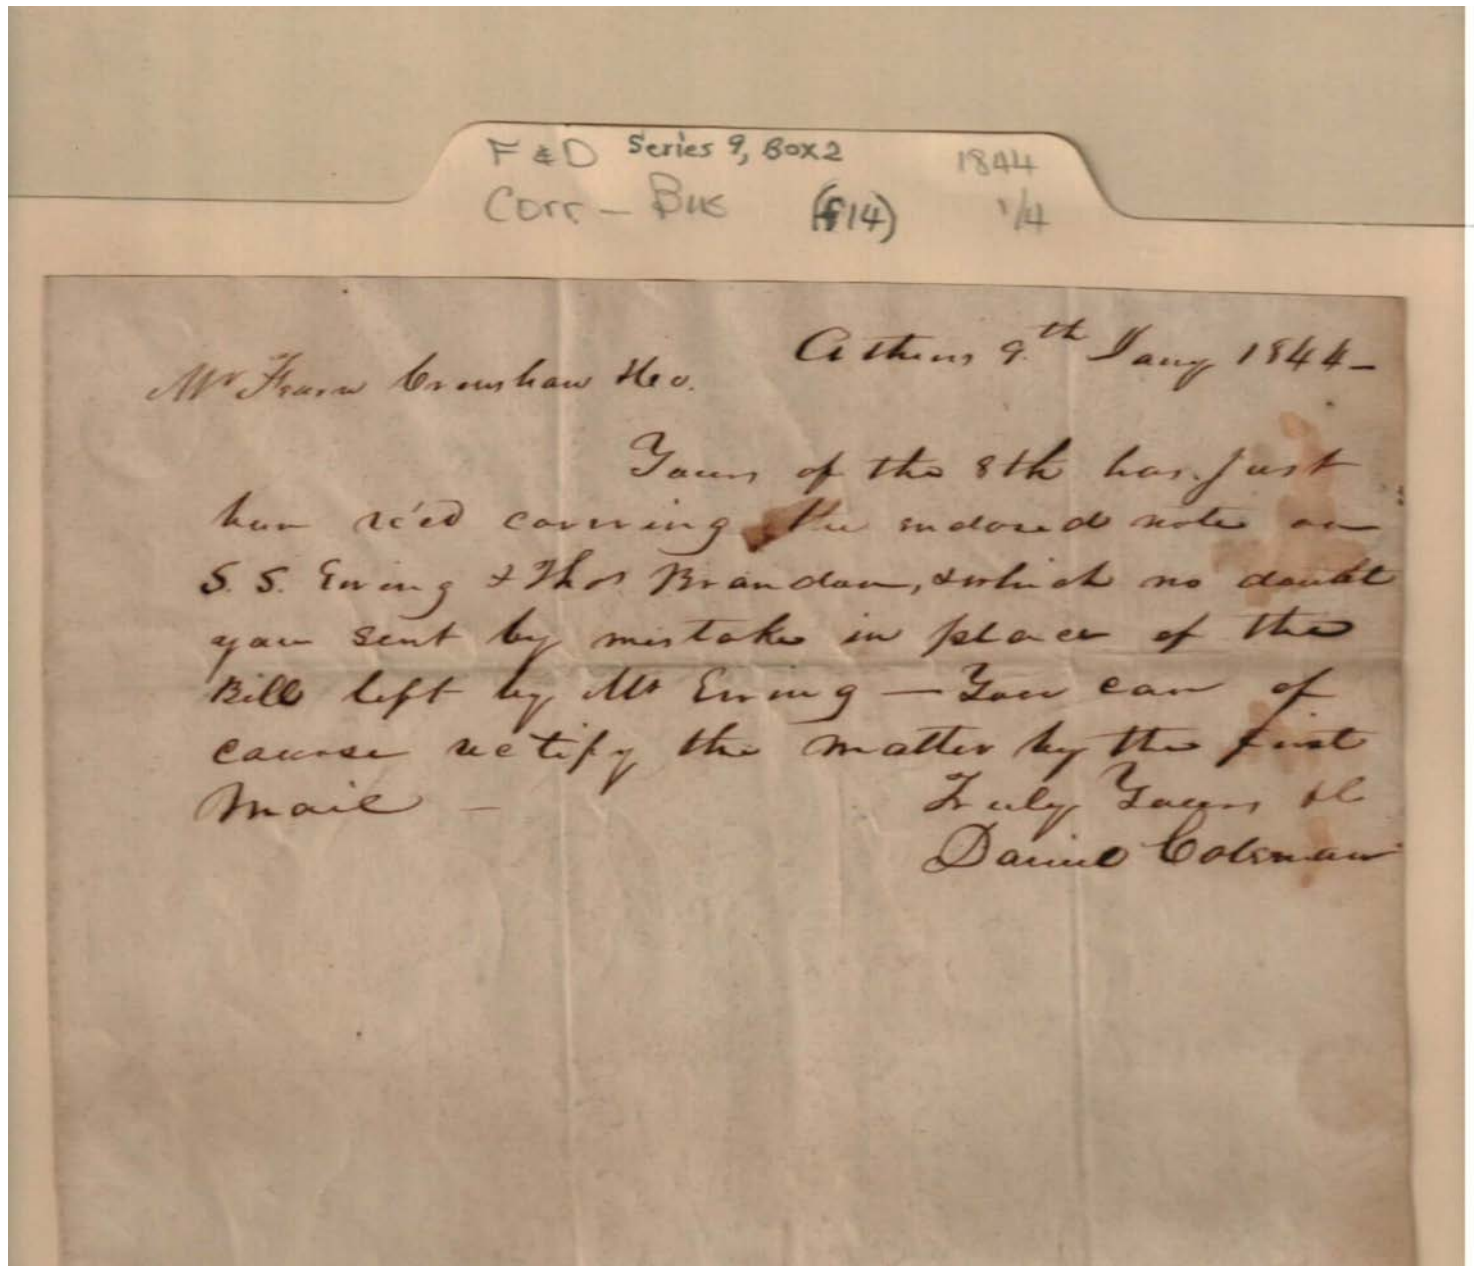 F & D Series 9, Box 2 1844
Corr - Bus (f14) 1/4
Athens 9th Jany 1844 -
Mr Fearn Crenshaw &co.
Yours of the 8th has just
been rc'ed covering the endorsed note on
S. S. Ewing & Thos Brandon, & which no doubt
you sent by mistake in place of the
Bill left by Mr Ewing - You can of
course rectify the matter by the first
Mail -
Truly Yours &c
Daniel Coleman